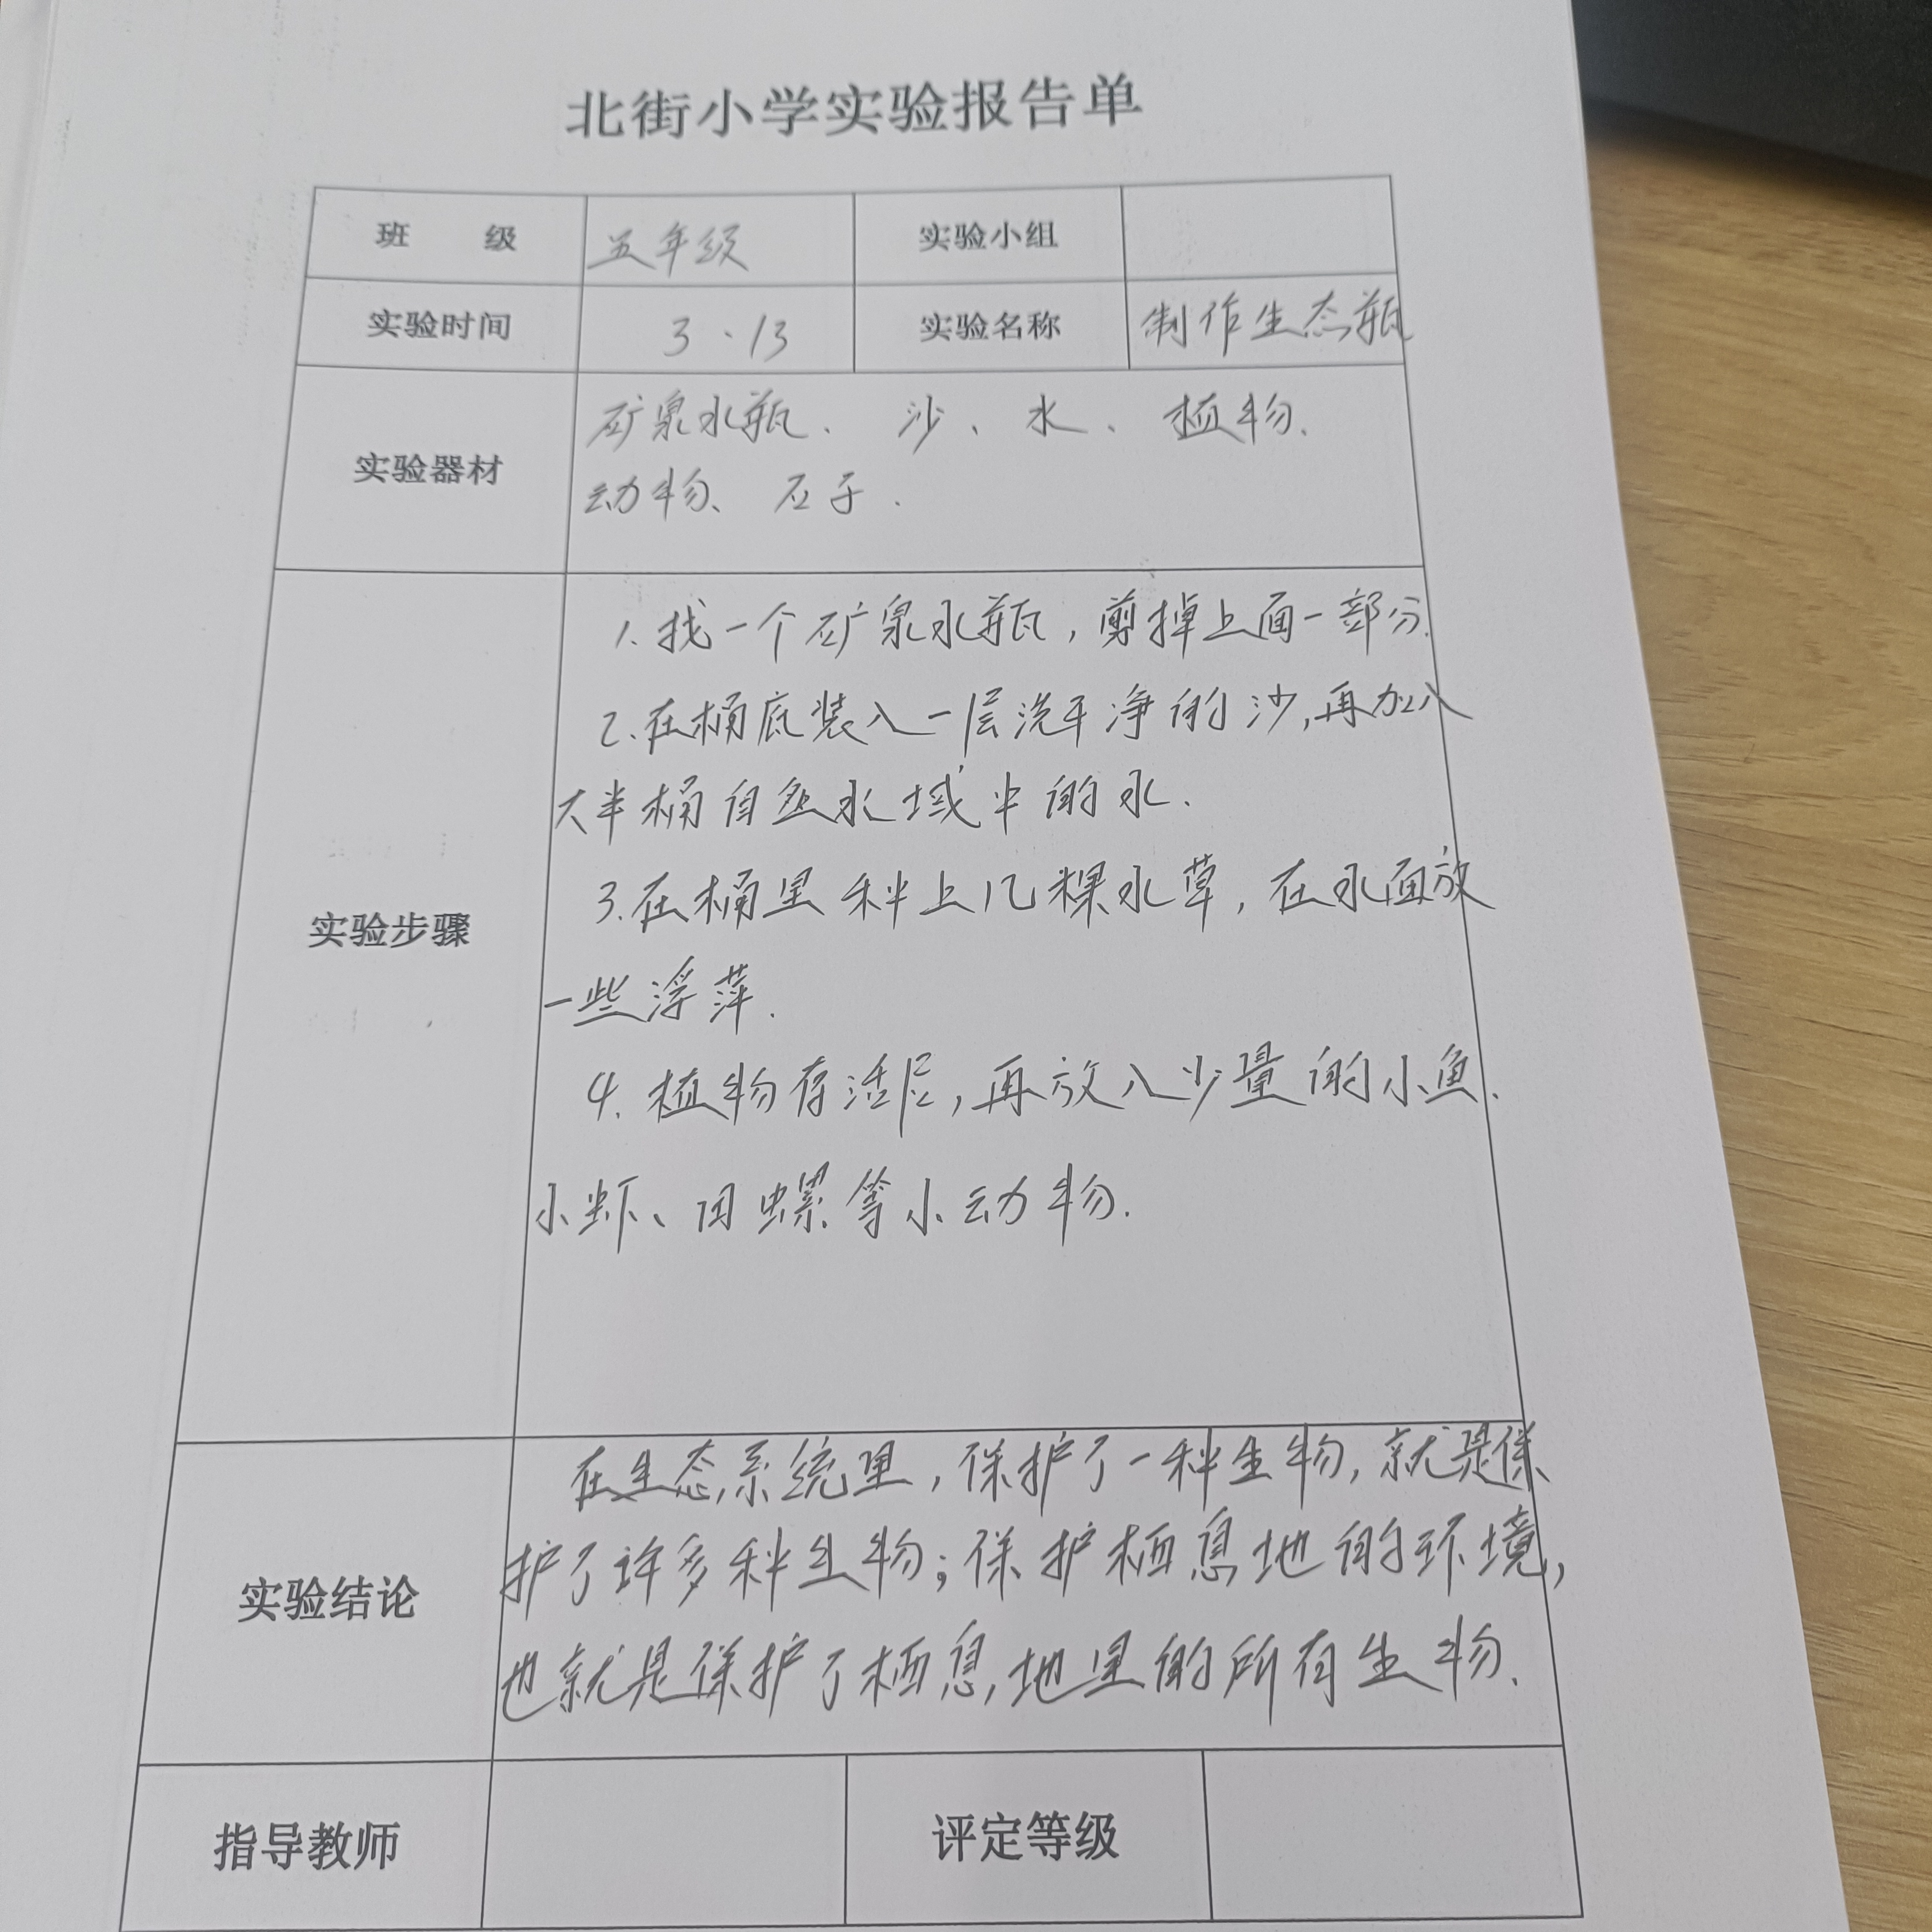 北街小学实验报告单
班 级 五年级 实验小组
实验时间 3·13 实验名称 制作生态瓶
实验器材
矿泉水瓶、沙、水、植物、
动物、石子.
实验步骤
1.找一个矿泉水瓶,剪掉上面一部分.
2.在桶底装入一层洗干净的沙,再加入
大半桶自然水域中的水.
3.在桶里种上几棵水草,在水面放
一些浮萍.
4.植物存活后,再放入少量的小鱼、
小虾、田螺等小动物.
实验结论
在生态系统里,保护了一种生物,就是保
护了许多种生物;保护栖息地的环境,
也就是保护了栖息地里的所有生物.
指导教师 评定等级